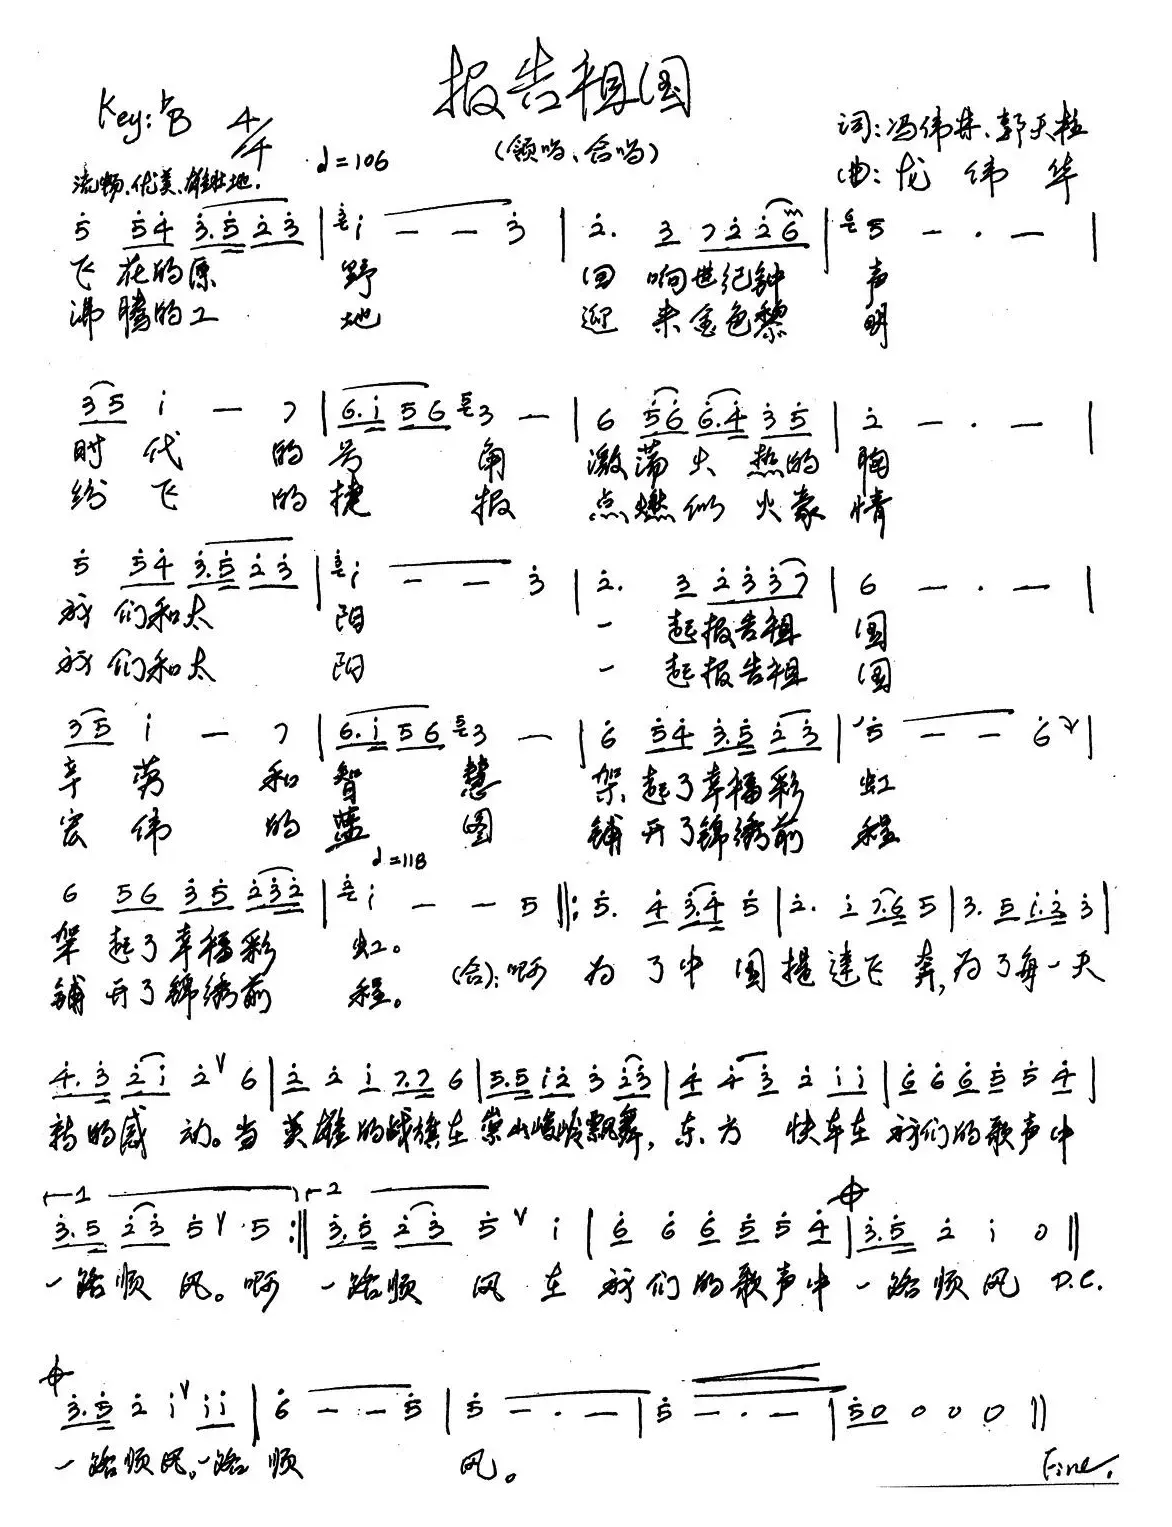 报告祖国
(领唱、合唱)
Key: ♭B 4/4
♩=106
词:冯伟林、郭天柱
曲:龙纬华
流畅、优美、雄壮地.
5 54 3.5 23 | 1 - - 3 | 2. 3 7226 | 5 - · - |
飞花的原 野 回响世纪钟 声
沸腾的工 地 迎来金色黎 明
35 1 - 7 | 6.1 56 3 - | 6 56 6.4 35 | 2 - · - |
时代 的号 角 激荡火热的 胸
纷飞 的捷 报 点燃似火豪 情
5 54 3.5 23 | 1 - - 3 | 2. 3 2337 | 6 - · - |
我们和太 阳 一 起报告祖 国
我们和太 阳 一 起报告祖 国
35 1 - 7 | 6.1 56 3 - | 6 54 3.5 23 | 5 - - 6 |
辛劳 和智 慧 架起了幸福彩 虹
宏伟 的蓝 图 铺开了锦绣前 程
♩=118
6 56 35 232 | 1 - - 5 ‖: 5. 4 3.4 5 | 2. 1 7.6 5 | 3. 5 1.2 3 |
架起了幸福彩 虹。
铺开了锦绣前 程。 (合):啊 为了中国提速飞奔,为了每一天
4.3 21 2 6 | 2 2 1 7.7 6 | 5.5 12 3 23 | 4 43 2 11 | 6 6 6 5 5 4 |
新的感动。当 英雄的战旗在崇山峻岭飘舞,东方 快车在我们的歌声中
1 2
3.5 23 5 5 :‖ 3.5 23 5 1 | 6 6 6 5 5 4 | 3.5 2 1 0 ‖
一路顺风。啊 一路顺 风 在 我们的歌声中 一路顺风 D.C.
3.5 2 1 11 | 6 - - 5 | 5 - · - | 5 - · - | 50 0 0 0 ‖
一路顺风。一路 顺 风。
Fine.